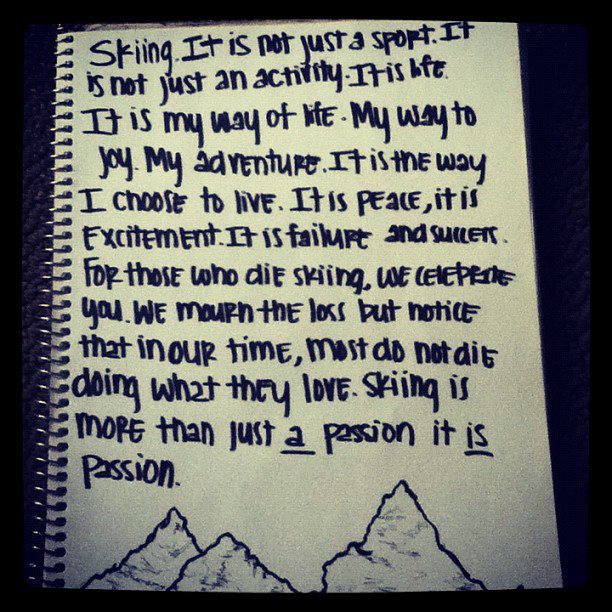 Skiing. It is not just a sport. It
is not just an activity. It is life.
It is my way of life. My way to
joy. My adventure. It is the way
I choose to live. It is peace, it is
excitement. It is failure and success.
For those who die skiing, we celebrate
you. We mourn the loss but notice
that in our time, most do not die
doing what they love. Skiing is
more than just a passion it is
passion.